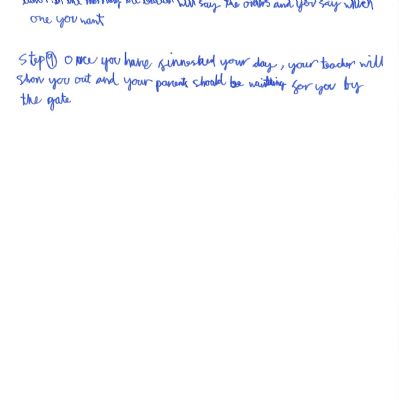 lunch in the morning the teacher will say the orders and you say which
one you want
Step 9 Once you have sinnoshed your day, your teacher will
show you out and your parents should be waiting for you by
the gate